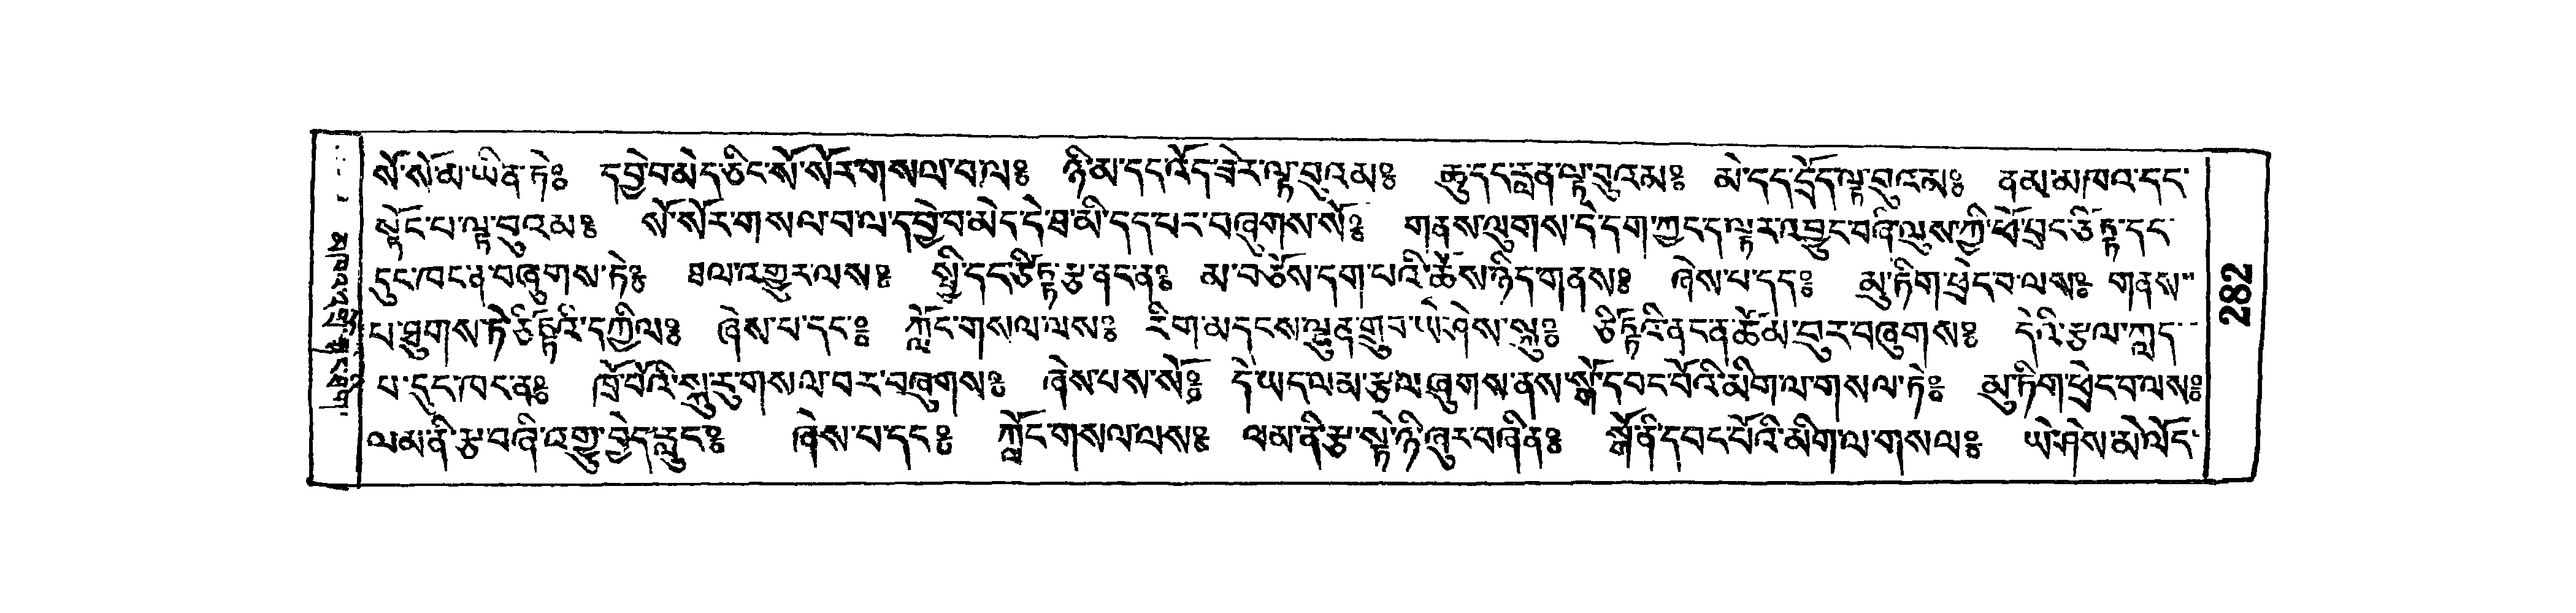 སོ་སོ་མ་ཡིན་ཏེ༔ དབྱེ་བ་མེད་ཅིང་སོ་སོར་གསལ་བ་ལ༔ ཉི་མ་དང་འོད་ཟེར་ལྟ་བུའམ༔ ཆུ་དང་རླན་ལྟ་བུའམ༔ མེ་དང་དྲོད་ལྟ་བུའམ༔ ནམ་མཁའ་དང་
སྟོང་པ་ལྟ་བུའམ༔ སོ་སོར་གསལ་བ་ལ་དབྱེ་བ་མེད་དེ་ཐ་མི་དད་པར་བཞུགས་སོ༔ གནས་ལུགས་དེ་དག་ཀྱང་ད་ལྟར་འབྱུང་བཞི་ལུས་ཀྱི་ཕོ་བྲང་ཙིཏྟ་དང་
དུང་ཁང་ན་བཞུགས་ཏེ༔ ཐལ་འགྱུར་ལས༔ སྤྱི་དང་ཙིཏྟ་རྩ་ནང་ན༔ མ་བཅོས་དག་པའི་ཆོས་ཉིད་གནས༔ ཞེས་པ་དང༔ མུ་ཏིག་ཕྲེང་བ་ལས༔ གནས་
པ་ཐུགས་ཏེ་ཙིཏྟའི་དཀྱིལ༔ ཞེས་པ་དང༔ ཀློང་གསལ་ལས༔ རིག་མདངས་ལྷུན་གྲུབ་ཡེ་ཤེས་སྐུ༔ ཙིཏྟའི་ནང་ན་ཆོམ་བུར་བཞུགས༔ དེའི་རྩལ་ཀླད་
པ་དུང་ཁང་ན༔ ཁྲོ་བོའི་སྐུ་རུ་གསལ་བར་བཞུགས༔ ཞེས་པས་སོ༔ དེ་ཡང་ལམ་རྩ་ལ་ཞུགས་ནས་སྒོ་དབང་པོའི་མིག་ལ་གསལ་ཏེ༔ མུ་ཏིག་ཕྲེང་བ་ལས༔
ལམ་ནི་རྩ་བཞི་འགྱུ་བྱེད་རླུང༔ ཞེས་པ་དང༔ ཀློང་གསལ་ལས༔ ལམ་ནི་རྩ་སྟེ་ཉི་ཞུར་བཞིན༔ སྒོ་ནི་དབང་པོའི་མིག་ལ་གསལ༔ ཡེ་ཤེས་མེ་ལོང་
282